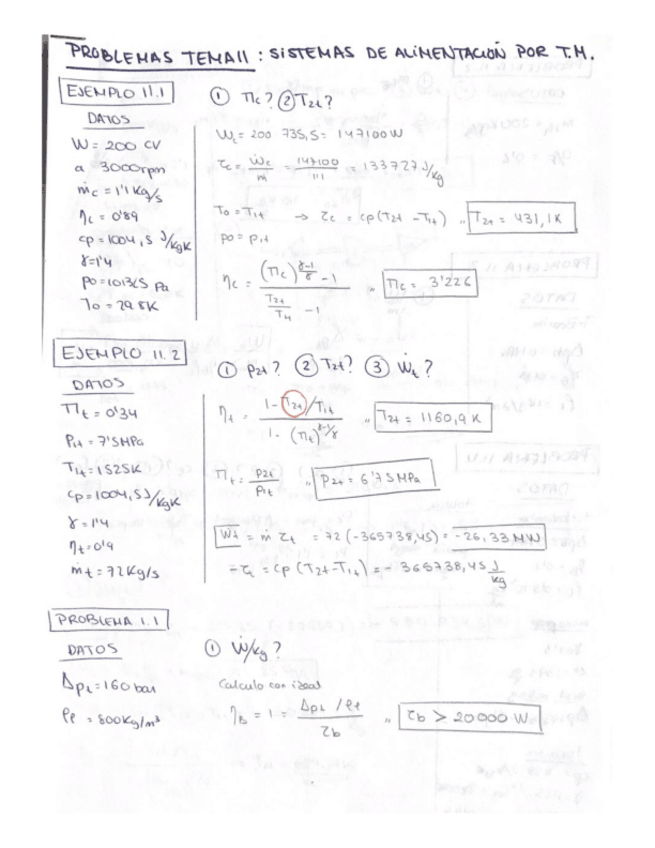 PROBLEMAS TEMA 11 : SISTEMAS DE ALIMENTACIÓN POR T.M.
EJEMPLO 11.1
① Πc? ② T2t?
DATOS
W = 200 CV
a 3000rpm
ṁc = 1'1 Kg/s
ηc = 0'89
cp = 1004,5 J/KgK
γ = 1'4
p0 = 101325 Pa
T0 = 298K
Ẇc = 200 735,5 = 147100 W
τc = Ẇc/ṁ = 147100/1'1 = 133727 J/kg
T0 = T1t → τc = cp (T2t - T1t) ,, T2t = 431,1K
p0 = p1t
ηc = ((Πc)^((γ-1)/γ) - 1)/(T2t/T1t - 1) ,, Πc = 3'226
EJEMPLO 11.2
① p2t? ② T2t? ③ Ẇt?
DATOS
Πt = 0'34
P1t = 7'5MPa
T1t = 1525K
cp = 1004,5J/KgK
γ = 1'4
ηt = 0'9
ṁt = 72Kg/s
ηt = (1 - T2t/T1t)/(1 - (Πt)^(γ-1/γ)) ,, T2t = 1160,9 K
Πt = P2t/P1t ,, P2t = 6'75 MPa
Ẇt = ṁ τt = 72 (-365738,45) = -26,33 MW
= τt = cp (T2t - T1t) = -365738,45 J/kg
PROBLEMA 1.1
DATOS
① Ẇ/kg?
ΔpL = 160 bar
ρl = 800Kg/m³
Calculo con ideal
ηb = 1 = (ΔpL / ρl)/τb ,, τb > 20000 W